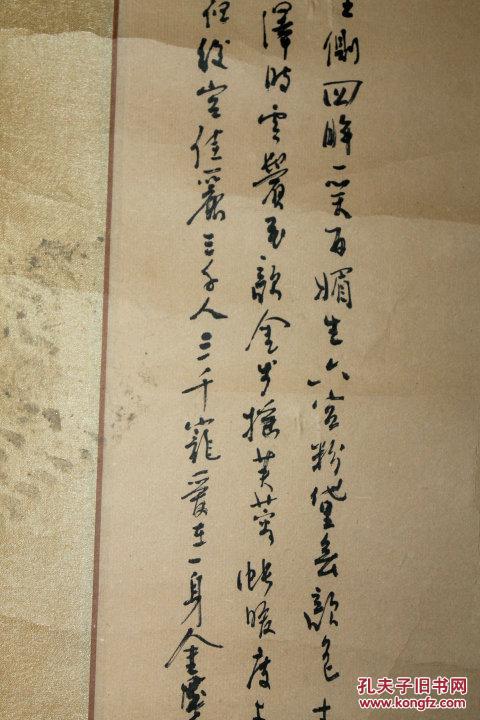 側回眸一笑百媚生六宮粉黛無顏色
澤時雲鬢花顏金步搖芙蓉帳暖度
但後宮佳麗三千人三千寵愛在一身金屋
孔夫子旧书网
www.kongfz.com